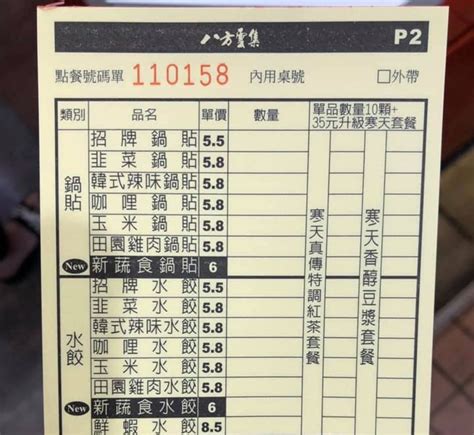 八方雲集 P2
點餐號碼單 110158 內用桌號 □外帶
類別 品名 單價 數量 單品數量10顆+
35元升級寒天套餐
鍋貼
招牌鍋貼 5.5
韭菜鍋貼 5.8
韓式辣味鍋貼 5.8
咖哩鍋貼 5.8
玉米鍋貼 5.8
田園雞肉鍋貼 5.8
New 新蔬食鍋貼 6
水餃
招牌水餃 5.5
韭菜水餃 5.8
韓式辣味水餃 5.8
咖哩水餃 5.8
玉米水餃 5.8
田園雞肉水餃 5.8
New 新蔬食水餃 6
鮮蝦水餃 8.5
寒天真傳特調紅茶套餐
寒天香醇豆漿套餐